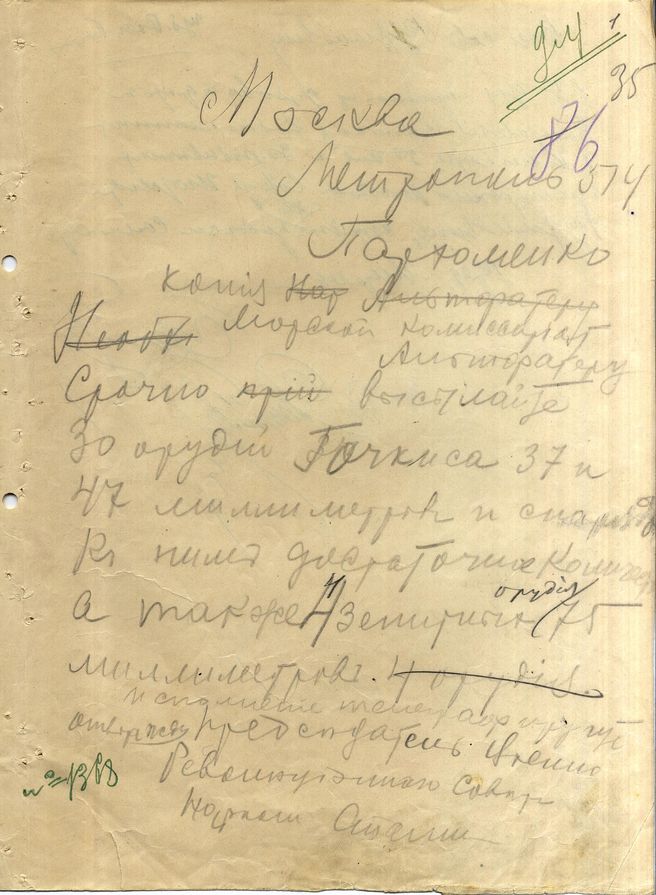 1
35
Москва
86
Метрополь 574
Пархоменко
копия Нар Антифатеру
Необх Морской комиссариат
Альтфатеру
Срочно прий высылайте
30 орудий Гочкиса 37 и
47 миллиметров и снаряд
к ним достаточное колич
а также 4 зенитных орудия 75
миллиметров. 4 орудия.
исполнение телеграфируйте
Председатель Военно
Революционного Совета
Нарком Сталин
№ 1388